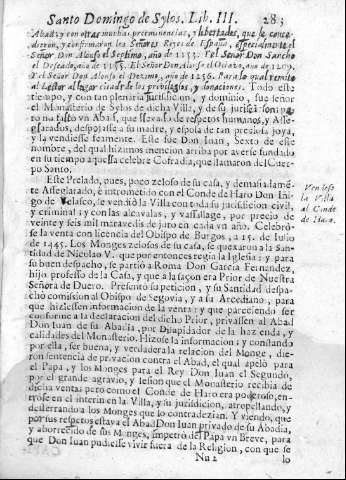 Santo Domingo de Sylos. Lib. III. 283
Abad; y con otras muchas preeminencias, y libertades, que le concedieron, y confirmaron los Señores Reyes de España, especialmente el
Señor Don Alonso el Septimo, año de 1253. Y el Señor Don Sancho
el Deseado, año de 1155. El Señor Don Alonso el Octavo, año de 1209.
Y el Señor Don Alonso el Dezimo, año de 1256. Para lo qual remito
al Lector al lugar citado de los privilegios, y donaciones. Todo este
tiempo, y con tan plenaria jurisdicion, y dominio, fue señor
el Monasterio de Sylos de dicha Villa, y de su jurisdicion; pero
no falto vn Abad, que llevado de respetos humanos, y Asseglarados,
despojasse a su madre, y esposa de tan preciosa joya,
y la vendiesse feamente. Este fue Don Iuan, Sexto de este
nombre, del qual hizimos mencion arriba por averse fundado
en su tiempo aquella celebre Cofradia, que llamaron del Cuerpo
Santo.
Este Prelado, pues, poco zeloso de su casa, y demasiadamente
Asseglarado, entrometido con el Conde de Haro Don Iñigo
de Velasco, le vendiò la Villa con toda su jurisdicion civil,
y criminal; y con las alcavalas, y vassallage, por precio de
veinte y seis mil maravedis de juro en cada vn año. Celebròse
la venta con licencia del Obispo de Burgos, a 15. de Iulio
de 1445. Los Monges zelosos de su casa, se quexaron a la Santidad
de Nicolao V. que por entonces regia la Iglesia; y para
su buen despacho, se partio a Roma Don Garcia Fernandez,
hijo professo de la Casa, y que a la façon era Prior de Nuestra
Señora de Duero. Presentò su peticion, y su Santidad despachò
comission al Obispo de Segovia, y a su Arcediano, para
que hiziessen informacion de la venta; y que pareciendo ser
conforme a la declaracion del dicho Prior, privassen al Abad
Don Iuan de su Abadia, por Dilapidador de la hazienda, y
calidades del Monasterio. Hizose la informacion; y constando
por ella, ser buena, y verdadera la relacion del Monge, dieron
sentencia de privacion contra el Abad, el qual apelò para
el Papa, y los Monges para el Rey Don Iuan el Segundo,
por el grande agravio, y lesion que el Monasterio recibia de
dicha venta; pero como el Conde de Haro era poderoso, entròse
en el interin en la Villa, y su jurisdicion, atropellando, y
desterrando a los Monges que lo contradezian. Y viendo, que
por sus respetos estava el Abad Don Iuan privado de su Abadia,
y aborrecido de sus Monges, impetrò del Papa vn Breve, para
que Don Iuan pudiesse vivir fuera de la Religion, con que se
Nn 2 lo
Vendese
la Villa
al Conde
de Haro.